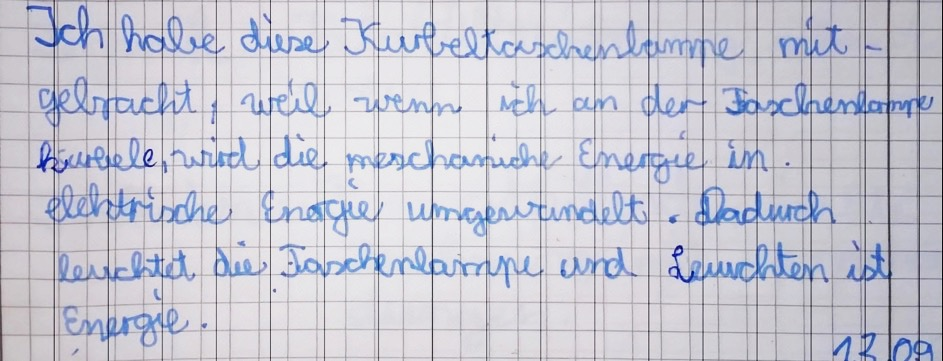 Ich habe diese Kurbeltaschenlampe mit-
gebracht, weil wenn ich an der Taschenlampe
kurbele, wird die meschaniche Energie in.
elektrische Energie umgewandelt. Dadurch
leuchtet die Taschenlampe und Leuchten ist
Energie.
12.09